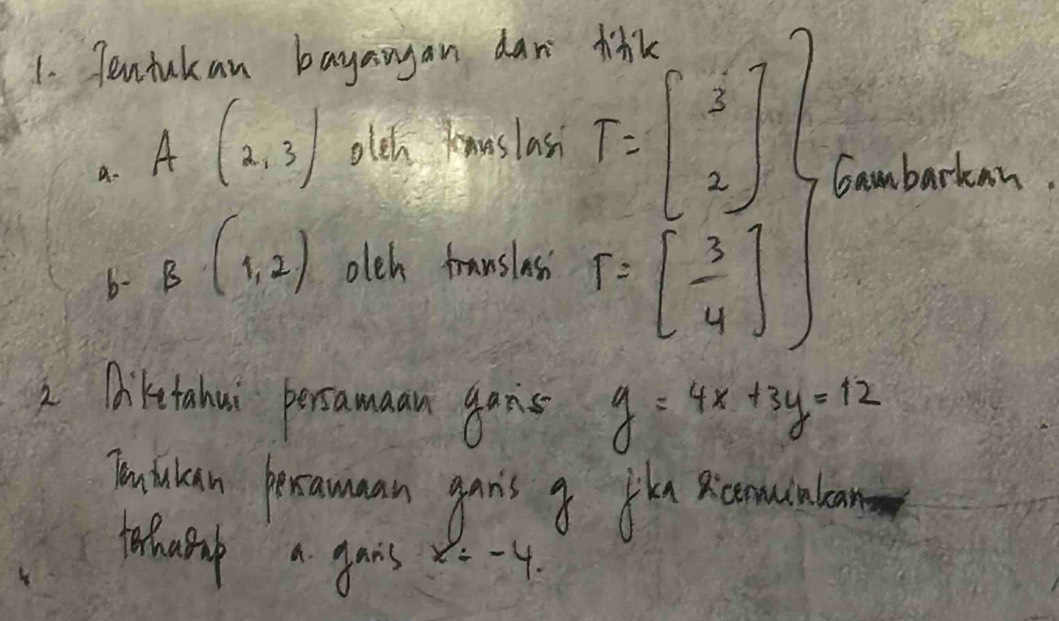 1. Tentukan bayangan dari titik
a. A (2, 3) oleh translasi T = [3 2] } Gambarkan.
b. B (1, 2) oleh translasi T = [3/4]
2 Diketahui persamaan garis g = 4x + 3y = 12
Tentukan persamaan garis g jika dicerminkan
terhadap a. garis x = -4.